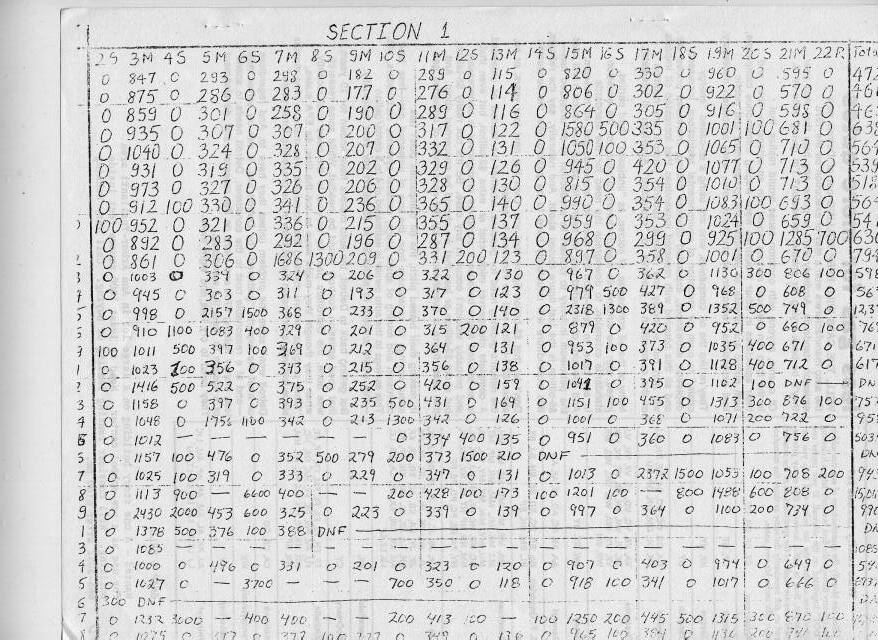 SECTION 1
2S 3M 4S 5M 6S 7M 8S 9M 10S 11M 12S 13M 14S 15M 16S 17M 18S 19M 20S 21M 22R Total
0 847 0 293 0 298 0 182 0 289 0 115 0 820 0 330 0 960 0 595 0 472
0 875 0 286 0 283 0 177 0 276 0 114 0 806 0 302 0 922 0 570 0 461
0 859 0 301 0 258 0 190 0 289 0 116 0 864 0 305 0 916 0 598 0 46
0 935 0 307 0 307 0 200 0 317 0 122 0 1580 500 335 0 1001 100 681 0 638
0 1040 0 324 0 328 0 207 0 332 0 131 0 1050 100 353 0 1065 0 710 0 564
0 931 0 319 0 335 0 202 0 329 0 126 0 945 0 420 0 1077 0 713 0 539
0 973 0 327 0 326 0 206 0 328 0 130 0 815 0 354 0 1010 0 713 0 518
0 912 100 330 0 341 0 236 0 365 0 140 0 990 0 354 0 1083 100 693 0 564
100 952 0 321 0 336 0 215 0 355 0 137 0 959 0 353 0 1024 0 659 0 541
0 892 0 283 0 292 0 196 0 287 0 134 0 968 0 299 0 925 100 1285 700 636
2 0 861 0 306 0 1686 1300 209 0 331 200 123 0 897 0 358 0 1001 0 670 0 794
3 0 1003 0 334 0 324 0 206 0 322 0 130 0 967 0 362 0 1130 300 806 100 598
4 0 945 0 303 0 311 0 193 0 317 0 123 0 979 500 427 0 968 0 608 0 567
5 0 998 0 2157 1500 368 0 233 0 370 0 140 0 2318 1300 389 0 1352 500 749 0 12,3
6 0 910 1100 1083 400 329 0 201 0 315 200 121 0 879 0 420 0 952 0 680 100 769
9 100 1011 500 397 100 369 0 212 0 364 0 131 0 953 100 373 0 1035 400 671 0 671
1 0 1023 200 356 0 343 0 215 0 356 0 138 0 1017 0 391 0 1128 400 712 0 617
2 0 1416 500 522 0 375 0 252 0 420 0 159 0 1091 0 395 0 1102 100 DNF — DN
3 0 1158 0 397 0 393 0 235 500 431 0 169 0 1151 100 455 0 1313 300 876 100 757
4 0 1048 0 1756 1100 342 0 213 1300 342 0 126 0 1001 0 368 0 1071 200 722 0 959
5 0 1012 — — — — — — 0 334 400 135 0 951 0 360 0 1083 0 756 0 503
6 0 1157 100 476 0 352 500 279 200 373 1500 210 DNF — DN
7 0 1025 100 319 0 333 0 229 0 347 0 131 0 1013 0 2372 1500 1055 100 708 200 943
8 0 1113 900 — 6600 400 — — 200 428 100 173 100 1201 100 — 800 1488 600 808 0 15,0
9 0 2430 2000 453 600 325 0 223 0 339 0 139 0 997 0 364 0 1100 200 734 0 990
1 0 1378 500 376 100 388 DNF — DN
3 0 1085 — — — — — — — — — — — — — — — — — — — 1085
4 0 1000 0 496 0 331 0 201 0 323 0 120 0 907 0 403 0 974 0 649 0 54
5 0 1027 0 — 3700 — — — 700 350 0 118 0 918 100 341 0 1017 0 666 0
6 300 DNF — DN
7 0 1232 3000 — 400 400 — — 200 413 100 — 100 1250 200 445 500 1315 300 870 100